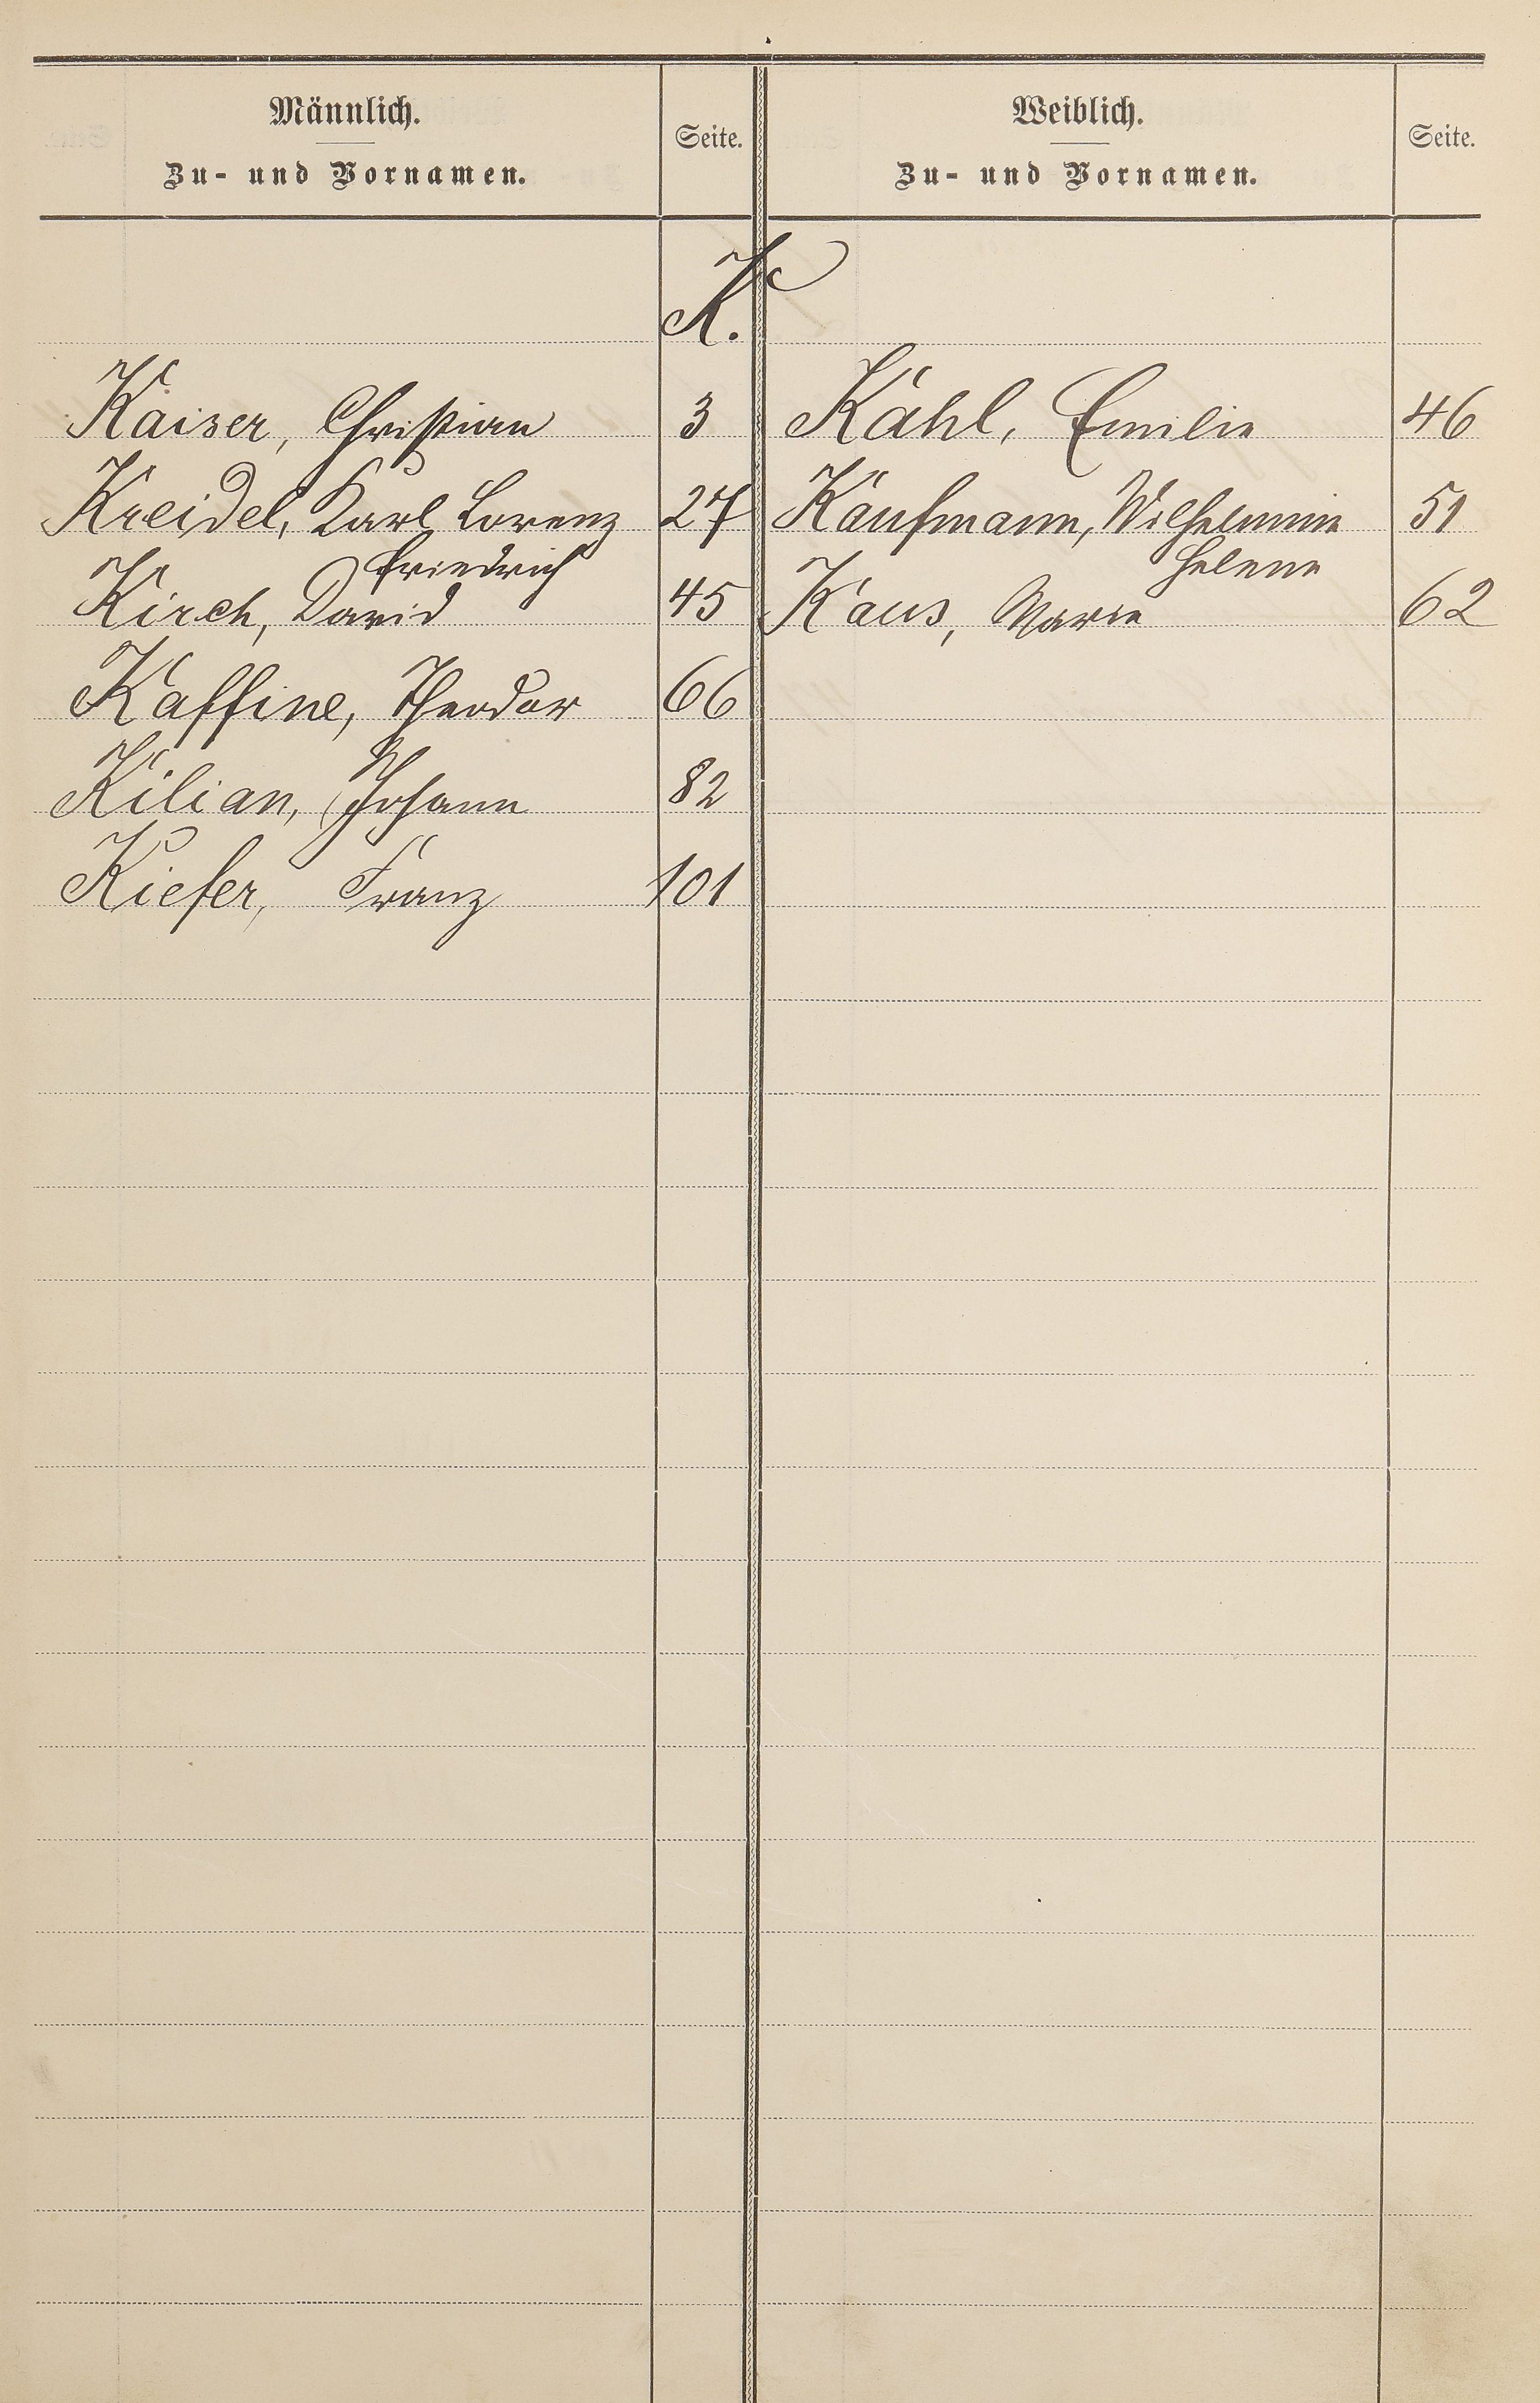 Männlich.
Zu- und Vornamen.
Seite.
Weiblich.
Zu- und Vornamen.
Seite.
K.
Kaiser, Christian 3 Kahl, Emilie 46
Kreidel, Karl Lorenz 27 Kaufmann, Wilhelmine 51
Friedrich Helene
Kirch, David 45 Kaus, Marie 62
Kaffine, Theodor 66
Kilian, Johann 82
Kiefer, Franz 101